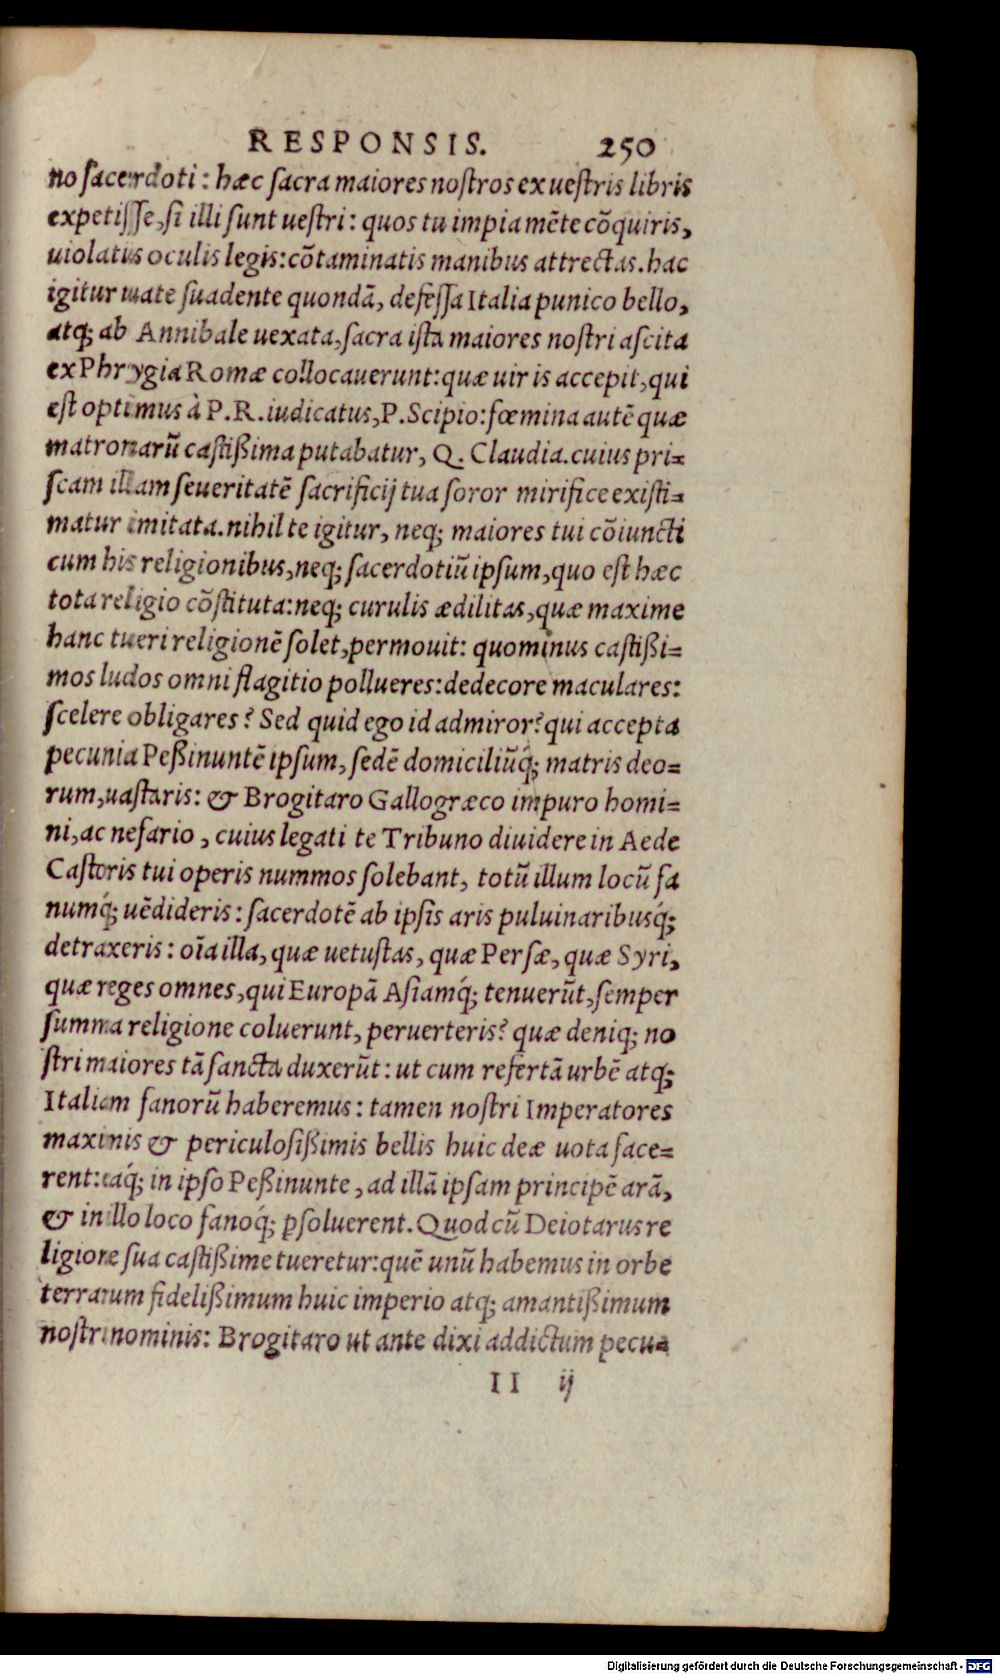 RESPONSIS. 250
no sacerdoti: hæc sacra maiores nostros ex uestris libris
expetisse, si illi sunt uestri: quos tu impia mẽte cõquiris,
uiolatis oculis legis: cõtaminatis manibus attrectas. hac
igitur uate suadente quondã, defessa Italia punico bello,
atq; ab Annibale uexata, sacra ista maiores nostri ascita
ex Phrygia Romæ collocauerunt: quæ uir is accepit, qui
est optimus à P. R. iudicatus, P. Scipio: fœmina autẽ quæ
matronarũ castißima putabatur, Q. Claudia. cuius pri=
scam illam seueritatẽ sacrificij tua soror mirifice existi=
matur imitata. nihil te igitur, neq; maiores tui cõiuncti
cum his religionibus, neq; sacerdotiũ ipsum, quo est hæc
tota religio cõstituta: neq; curulis ædilitas, quæ maxime
hanc tueri religionẽ solet, permouit: quominus castißi=
mos ludos omni flagitio pollueres: dedecore maculares:
scelere obligares? Sed quid ego id admiror? qui accepta
pecunia Peßinuntẽ ipsum, sedẽ domiciliũq́; matris deo=
rum, uastaris: & Brogitaro Gallogræco impuro homi=
ni, ac nefario, cuius legati te Tribuno diuidere in Aede
Castoris tui operis nummos solebant, totũ illum locũ fa
numq́; uẽdideris: sacerdotẽ ab ipsis aris puluinaribusq́;
detraxeris: oĩa illa, quæ uetustas, quæ Persæ, quæ Syri,
quæ reges omnes, qui Europã Asiamq́; tenuerũt, semper
summa religione coluerunt, peruerteris? quæ deniq; no
stri maiores tã sancta duxerũt: ut cum refertã urbẽ atq;
Italiam fanorũ haberemus: tamen nostri Imperatores
maximis & periculosißimis bellis huic deæ uota face=
rent: eaq́; in ipso Peßinunte, ad illã ipsam principẽ arã,
& in illo loco fanoq́; ꝑsoluerent. Quod cũ Deiotarus re
ligione sua castißime tueretur: quẽ unũ habemus in orbe
terrarum fidelißimum huic imperio atq; amantißimum
nostri nominis: Brogitaro ut ante dixi addictum pecu=
II ij
Digitalisierung gefördert durch die Deutsche Forschungsgemeinschaft - DFG